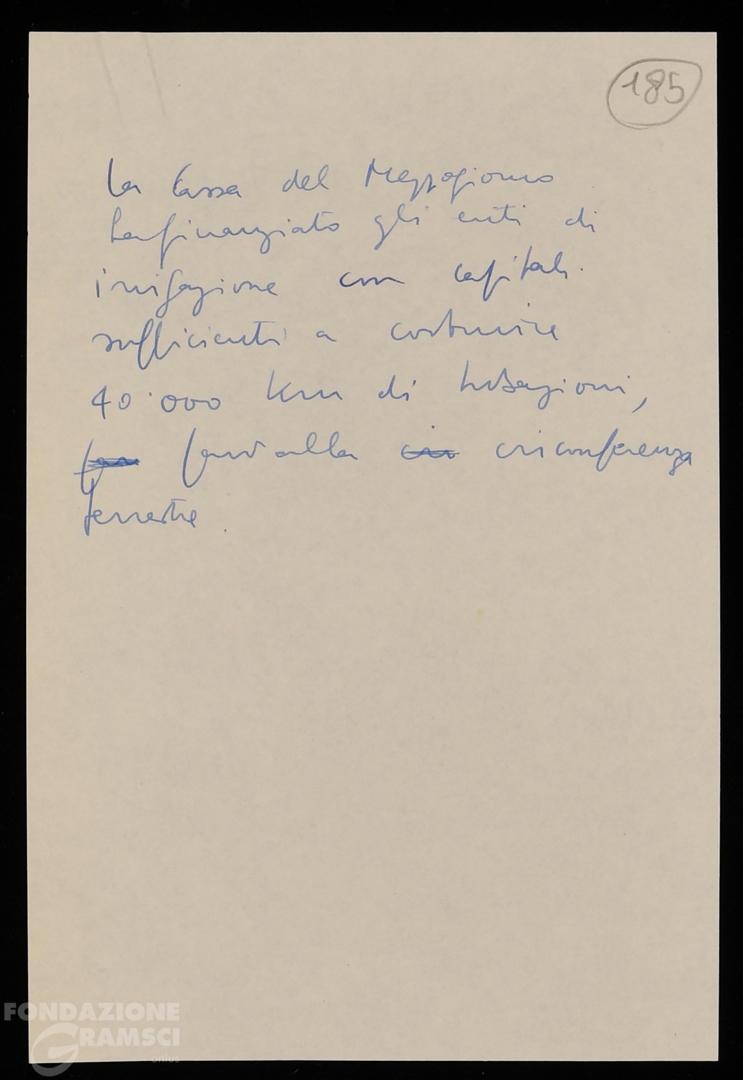 185
La Cassa del Mezzogiorno
ha finanziato gli enti di
irrigazione con capitali
sufficienti a costruire
40.000 km di tubazioni,
pari alla circonferenza
terrestre.
FONDAZIONE
GRAMSCI
onlus